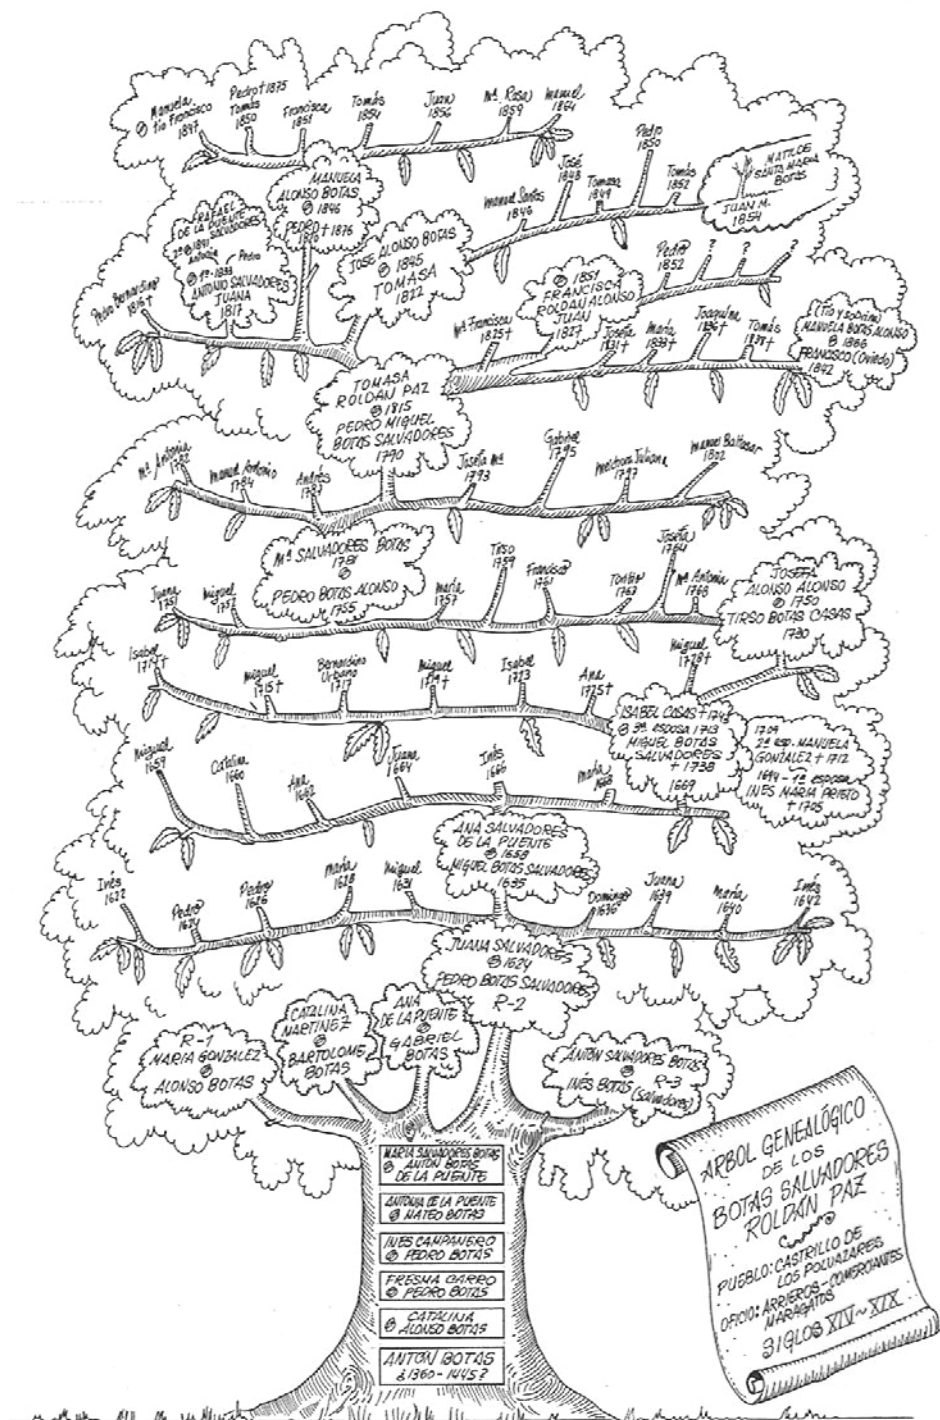 Manuela
tío Francisco
1847
Pedro † 1875
Tomás
1850
Francisca
1851
Tomás
1854
Juan
1856
Mª Rosa
1859
Manuel
1864
MANUELA
ALONSO BOTAS
1846
PEDRO † 1876
RAFAEL
DE LA PUENTE
SALVADORES
2º 1841
Antonia
Pedro
1º - 1833
ANTONIO SALVADORES
JUANA
1817
Pedro Bernardino
1816 †
JOSE ALONSO BOTAS
1845
TOMASA
1822
Manuel Santos
1846
José
1848
Tomasa
1849
Pedro
1850
Tomás
1852
MATILDE
SANTA MARIA
BOTAS
JUAN M.
1854
1851
FRANCISCA
ROLDAN ALONSO
JUAN
1827
Pedro
1852
?
?
?
Mª Francisca
1825 †
Josefa
1831 †
María
1833 †
Joaquina
1836 †
Tomás
1838 †
(Tío y sobrina)
MANUELA BOTAS ALONSO
1866
FRANCISCO (Oviedo)
1842
TOMASA
ROLDAN PAZ
1815
PEDRO MIGUEL
BOTAS SALVADORES
1790
Mª Antonia
1782
Manuel Antonio
1784
Andrés
1787
Josefa Mª
1793
Gabriel
1795
Melchora Juliana
1797
Manuel Baltasar
1802
Mª SALVADORES BOTAS
1781
PEDRO BOTAS ALONSO
1755
Juana
Miguel
María
1757
Tirso
1759
Francisco
1761
1763
Josefa
1764
Mª Antonia
1768
JOSEFA
ALONSO ALONSO
1750
TIRSO BOTAS CASAS
1730
Isabel
1714 †
Miguel
1715 †
Bernardino
Urbano
1717
Miguel
1719 †
Isabel
1723
Ana
1725 †
Miguel
1728 †
ISABEL CASAS † 1743
3ª esposa 1713
MIGUEL BOTAS
SALVADORES
† 1738
1669
1709
2ª esp. MANUELA
GONZALEZ † 1712
1694 - 1ª esposa
INES MARIA PRIETO
† 1705
Miguel
1659
Catalina
1660
Ana
1662
Juana
1664
Inés
1666
María
1668
ANA SALVADORES
DE LA PUENTE
1658
MIGUEL BOTAS SALVADORES
1635
Inés
1622
Pedro
1624
Pedro
1626
María
1628
Miguel
1631
Domingo
1636
Juana
1639
María
1640
Inés
1642
JUANA SALVADORES
1624
PEDRO BOTAS SALVADORES
R-2
R-1
MARIA GONZALEZ
ALONSO BOTAS
CATALINA
MARTINEZ
BARTOLOME
BOTAS
ANA
DE LA PUENTE
GABRIEL
BOTAS
ANTON SALVADORES BOTAS
INÉS BOTAS R-3
(Salvadores)
MARIA SALVADORES BOTAS
ANTON BOTAS
DE LA PUENTE
ANTONIA DE LA PUENTE
MATEO BOTAS
INES CAMPANERO
PEDRO BOTAS
FRESMA GARRO
PEDRO BOTAS
CATALINA
ALONSO BOTAS
ANTON BOTAS
¿1360 - 1445?
ARBOL GENEALÓGICO
DE LOS
BOTAS SALVADORES
ROLDÁN PAZ
PUEBLO: CASTRILLO DE
LOS POLVAZARES
OFICIO: ARRIEROS-COMERCIANTES
MARAGATOS
SIGLOS XIV~XIX